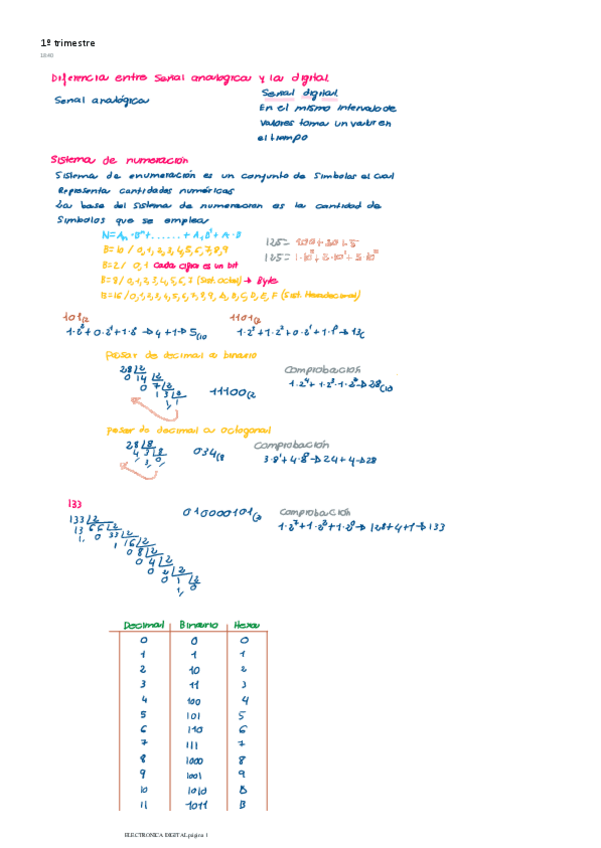 1º trimestre
18:40
Diferencia entre señal analógica y la digital
Señal analógica
Señal digital
En el mismo intervalo de
valores toma un valor en
el tiempo
Sistema de numeración
Sistema de enumeración es un conjunto de simbolos el cual
Representa cantidades numéricas
La base del sistema de numeración es la cantidad de
simbolos que se emplea
B=10 / 0,1,2,3,4,5,6,7,8,9
B=2 / 0,1 Cada cifra es un bit
B=8 / 0,1,2,3,4,5,6,7 (Sist. octal) → Byte
101(2
1101(2
1·2²+0·2¹+1·2⁰→4+1→5(10
Pasar de decimal a binario
28 |2
0 14 |2
0 7 |2
1 3 |2
1, 1
11100(2
Comprobación
1·2⁴+1·2³·1·2²→28(10
pasar de decimal a octogonal
28 |8
4, 3 |8
3, 0,
034(8
Comprobación
3·8¹+4·8⁰→24+4→28
133
133 |2
13 66 |2
1, 0 33 |2
1 16 |2
0 8 |2
0 4 |2
0 2 |2
0 1 |2
1, 0
010000101(2
Comprobación
1·2⁷+1·2²+1·2⁰→128+4+1→133
Decimal Binario Hexa
0 0 0
1 1 1
2 10 2
3 11 3
4 100 4
5 101 5
6 110 6
7 111 7
8 1000 8
9 1001 9
10 1010
11 1011 B
ELECTRONICA DIGITAL página 1